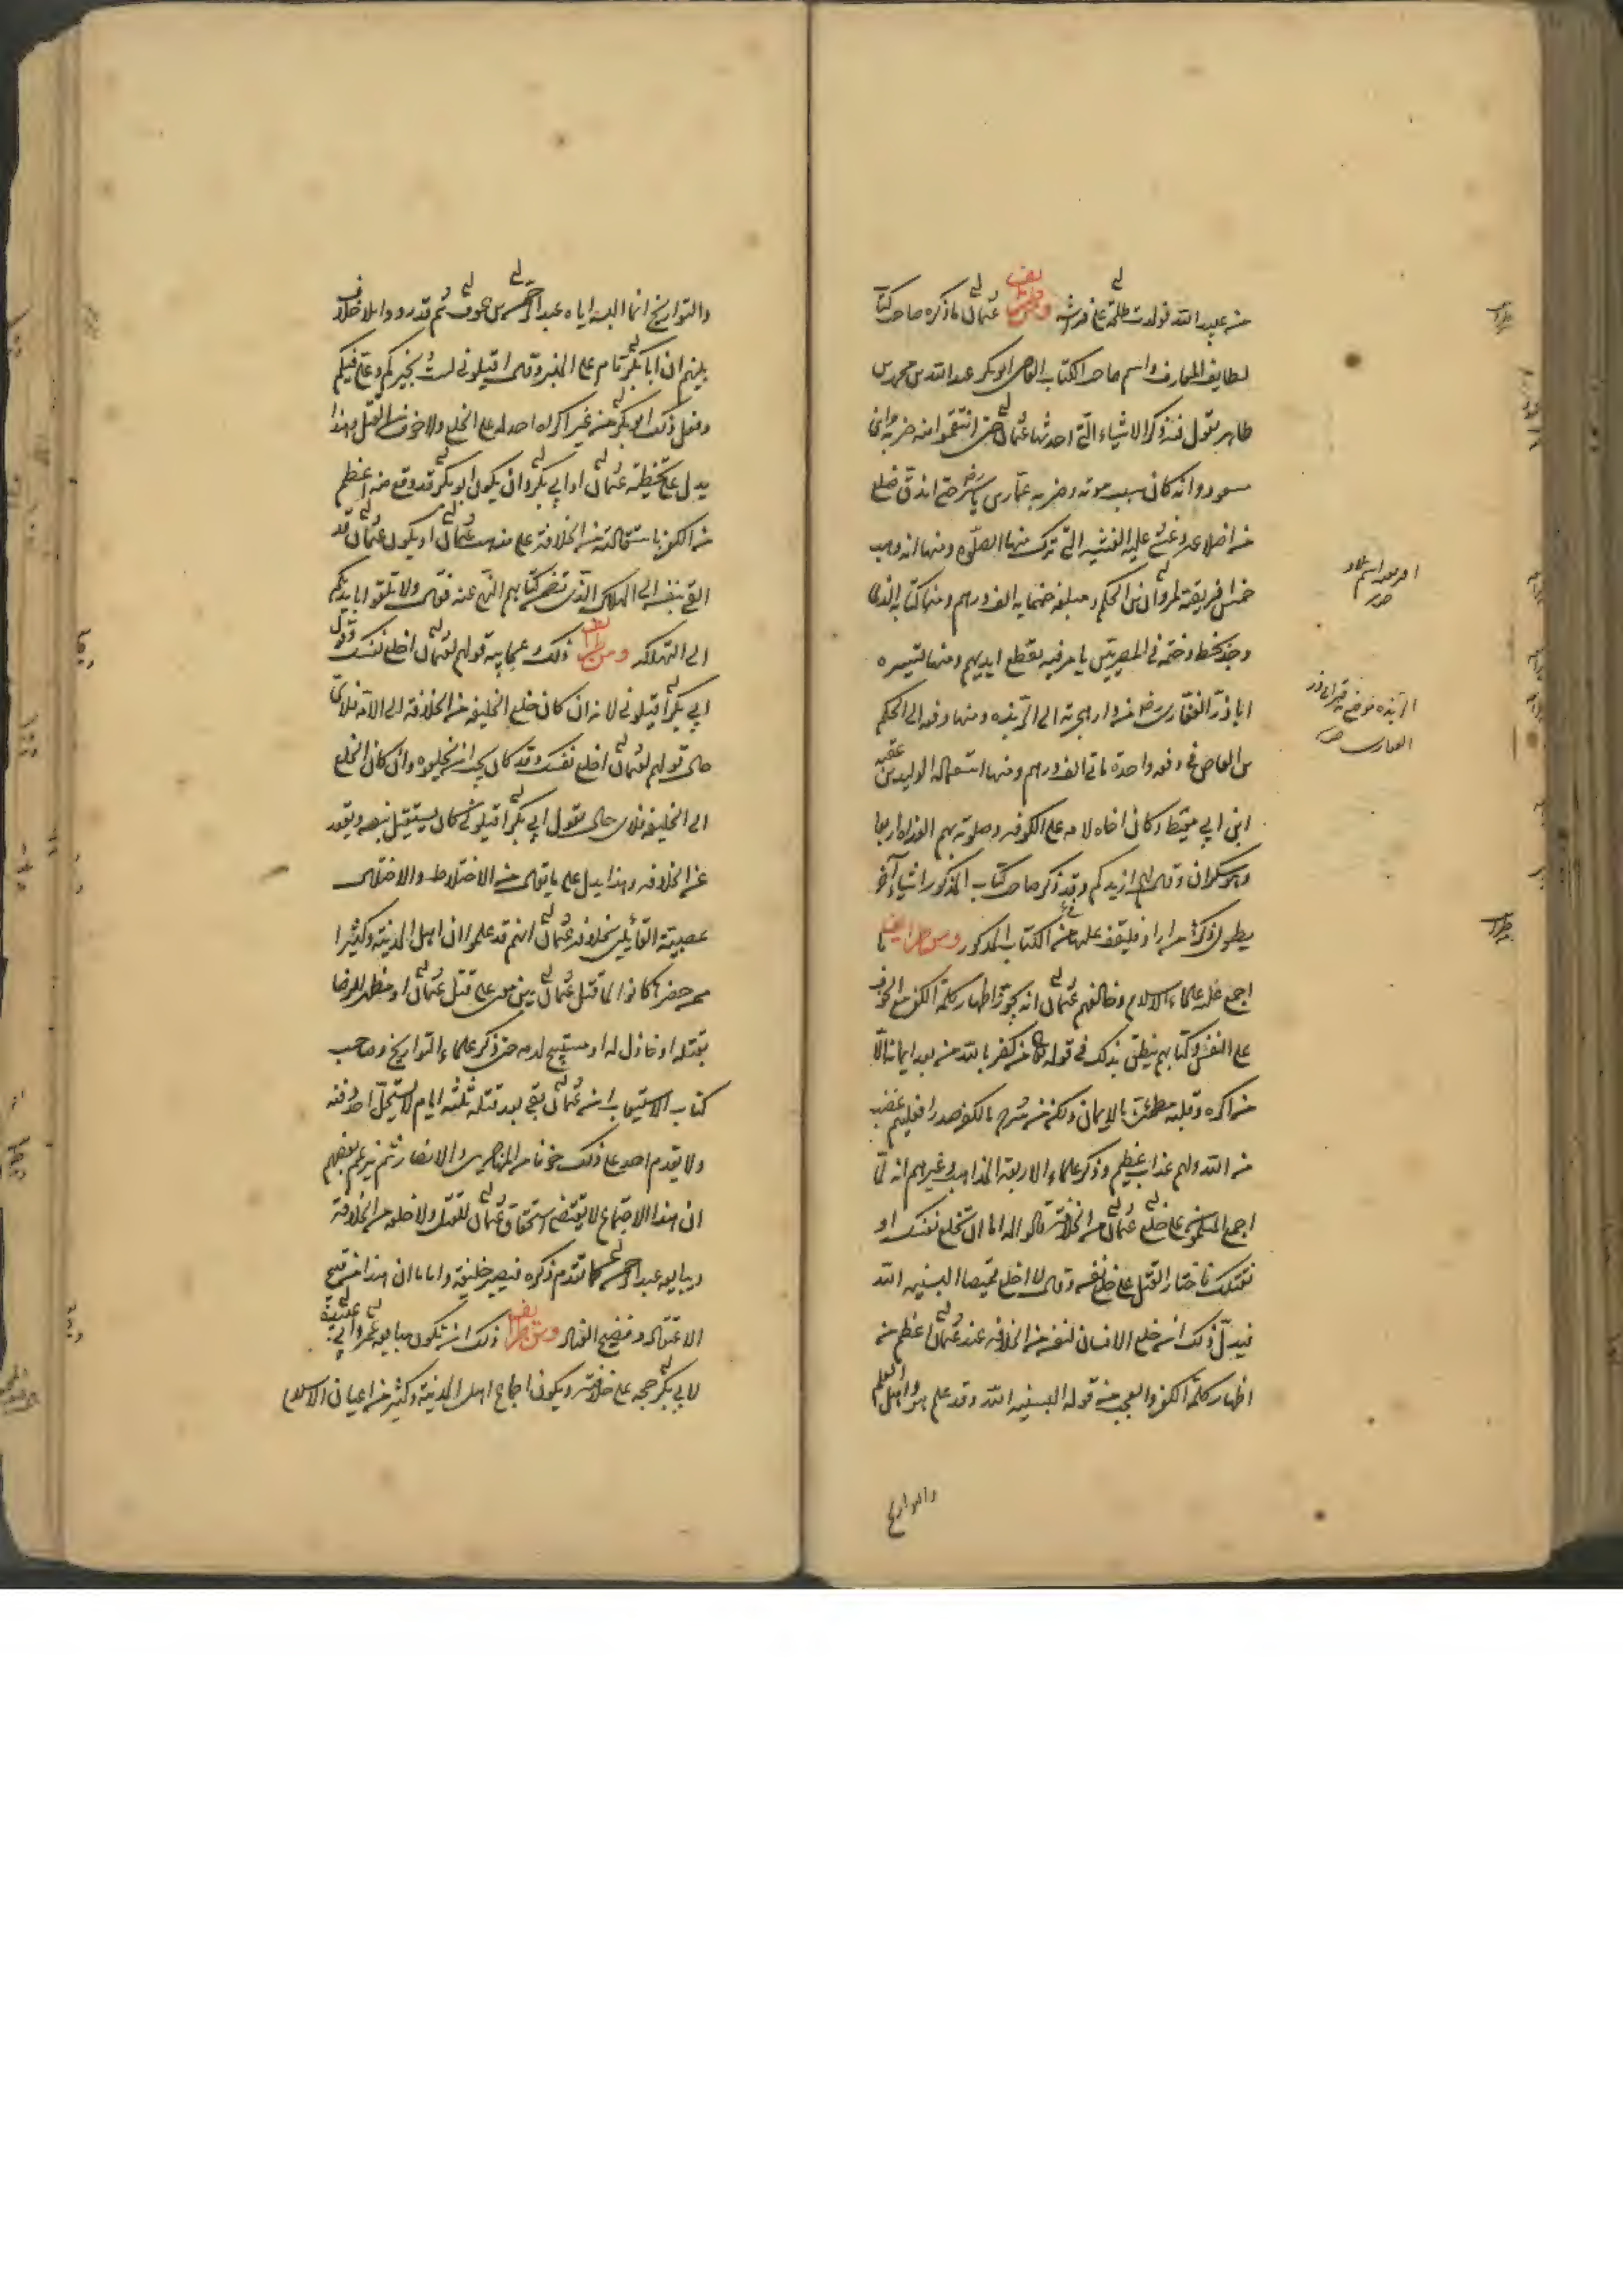 من عبيد الله فولدت طلحة على فراشه ومن طرايف عثمان ما ذكره صاحب كتاب
لطايف المعارف واسم صاحب الكتاب القاضي ابو بكر عبد الله بن محمد بن
طاهر يقول فيذكر الاشياء التي احدثها عثمان حتى انتقموا منه ضربه ابن
مسعود وانه كان سبب موته وضربه عمار بن ياسر حتى اندق ضلع
من اضلاعه وغشى عليه الغشية التي ترك منها الصلوة ومنها انه وهب
خمس افريقية لمروان بن الحكم ومبلغه خمسمايه الف درهم ومنها كتابه الذى
وجد بخطه وختمه في المصريين يامر فيه بقطع ايديهم ومنها تسييره
ابا ذر الغفارى من دار هجرته الى الربذه ومنها دفعه الى الحكم
بن العاص في دفعه واحدة ماتى الف درهم ومنها استعماله الوليد بن عقبه
ابن ابي معيط وكان اخاه لامه على الكوفه وصلوته بهم الغداه اربعا
وهو سكران وقال لهم ازيدكم وقد ذكر صاحب كتاب المذكور اشياء آخر
يطول ذكرها من اراد فليقف عليها من الكتاب المذكور ومن طرايف ما
اجمع عليه علماء الاسلام وخالفهم عثمان انه يجوز اظهار كلمة الكفر مع الخوف
على النفس وكتابهم ينطق بذلك في قوله من كفر بالله من بعد ايمانه الا
من اكره وقلبه مطمئن بالايمان ولكن من شرح بالكفر صدرا فعليهم غضب
من الله ولهم عذاب عظيم وذكر علماء الاربعة المذاهب وغيرهم انه لما
اجمع المسلمون على خلع عثمان من الخلافة قالوا له اما ان تخلع نفسك او
نقتلك فاختار القتل على خلع نفسه وقال لا اخلع قميصا البسنيه الله
فيدل ذلك ان خلع الانسان لنفسه من الخلافه عند عثمان اعظم من
اظهار كلمة الكفر والعجب من قوله البسنيه الله وقد علم هو واهل العلم
والتواريخ
الربذه موضع قبر ابي ذر
الغفارى
والتواريخ انما البسه اياه عبد الرحمن بن عوف ثم قد رووا بلا خلاف
بينهم ان ابا بكر قام على المنبر وقال اقيلوني لست بخيركم وعلى فيكم
وفعل ذلك ابو بكر من غير اكراه احد له على الخلع ولا خوف القتل وهذا
يدل على تخطئة عثمان او ابي بكر وان يكون ابو بكر قد وقع منه اعظم
من الكفر باستقالته من الخلافة على مذهب عثمان او يكون عثمان قد
القى بنفسه الى الهلاك الذى تضمن كتابهم النهى عنه فقال ولا تلقوا بايديكم
الى التهلكه ومن طرايف ذلك وعجايبه قولهم لعثمان اخلع نفسك وقول
ابي بكر اقيلوني لانه ان كان خلع الخليفه من الخلافة الى الامة فلاى
حال قولهم لعثمان اخلع نفسك وقد كان يجب ان يخلعوه وان كان الخلع
الى الخليفه فلاى حال يقول ابي بكر اقيلوني كان يستقيل بنفسه ويقعد
عن الخلافه وهذا يدل على ما يقال من الاختلاط والاختلال
عصبية القائلين بخلافة عثمان انهم قد علموا ان اهل المدينة وكثيرا
من حضرها كانوا لما قتل عثمان بين معين على قتل عثمان او مظهر للرضا
بقتله او خاذل له او مستبيح لدمه حتى ذكر علماء التواريخ وصاحب
كتاب الاستيعاب ان عثمان بقى بعد قتله ثلثه ايام لا يستحل احد دفنه
ولا يقدم احد على ذلك خوفا من المهاجرين والانصار ثم يزعم بعضهم
ان هذا الاجتماع لا يقتضى استحقاق عثمان للقتل ولا خلعه من الخلافة
ويبايعه عبد الرحمن كما تقدم ذكره فيصير خليفة واماما ان هذا من قبيح
الاعتقاد وفضيح العناد ومن طرايف ذلك ان تكون مبايعه عمر وابي عبيدة
لابي بكر حجه على خلافته ويكون اجماع اهل المدينة وكثير من اعيان الاسلام